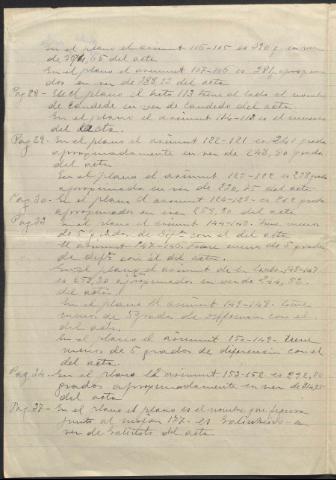 En el plano el acimut 116-105 es 290 g. en vez
de 
En el plano el acimut 107-106 es 281 aprogima
dos en vez de 288,12 del acta
Pag 28 - En el plano el hito 113 tiene al lado el nombre
de Candede en vez de Candedo del acta
En el plano el acimut 114-113 es el mismo
del acta.
Pag 29. En el plano el acimut 122-121 es 241 grados
aproximadamente en vez de 248,20 grados
del acta
En el plano el acimut 123-122 es 228 grados
aproximados en vez de del acta
Pag 30 - En el plano el acimut es 262 grados
aproximados en vez 259,20 del acta
Pag 32 En el plano el acimut 144-143 tiene menos
de 5 grados de con el del acta
El acimut 147-146 tiene menos de 5 grados
de con el del acta.
En el plano el acimut de la 148-147
es en vez de
del acta
En el plano el acimut 149-148 tiene
menos de 5 grados de diferencia con el
del acta.
En el plano el acimut 150-149 tiene
menos de 5 grados de diferencia con el
del acta
Pag 34. En el plano el acimut 153-152 es 292,20
grados aproximadamente en vez de
del acta
Pag 37 - En el plano el plano es el nombre que figura
junto al mojon 157 es
vez de del acta